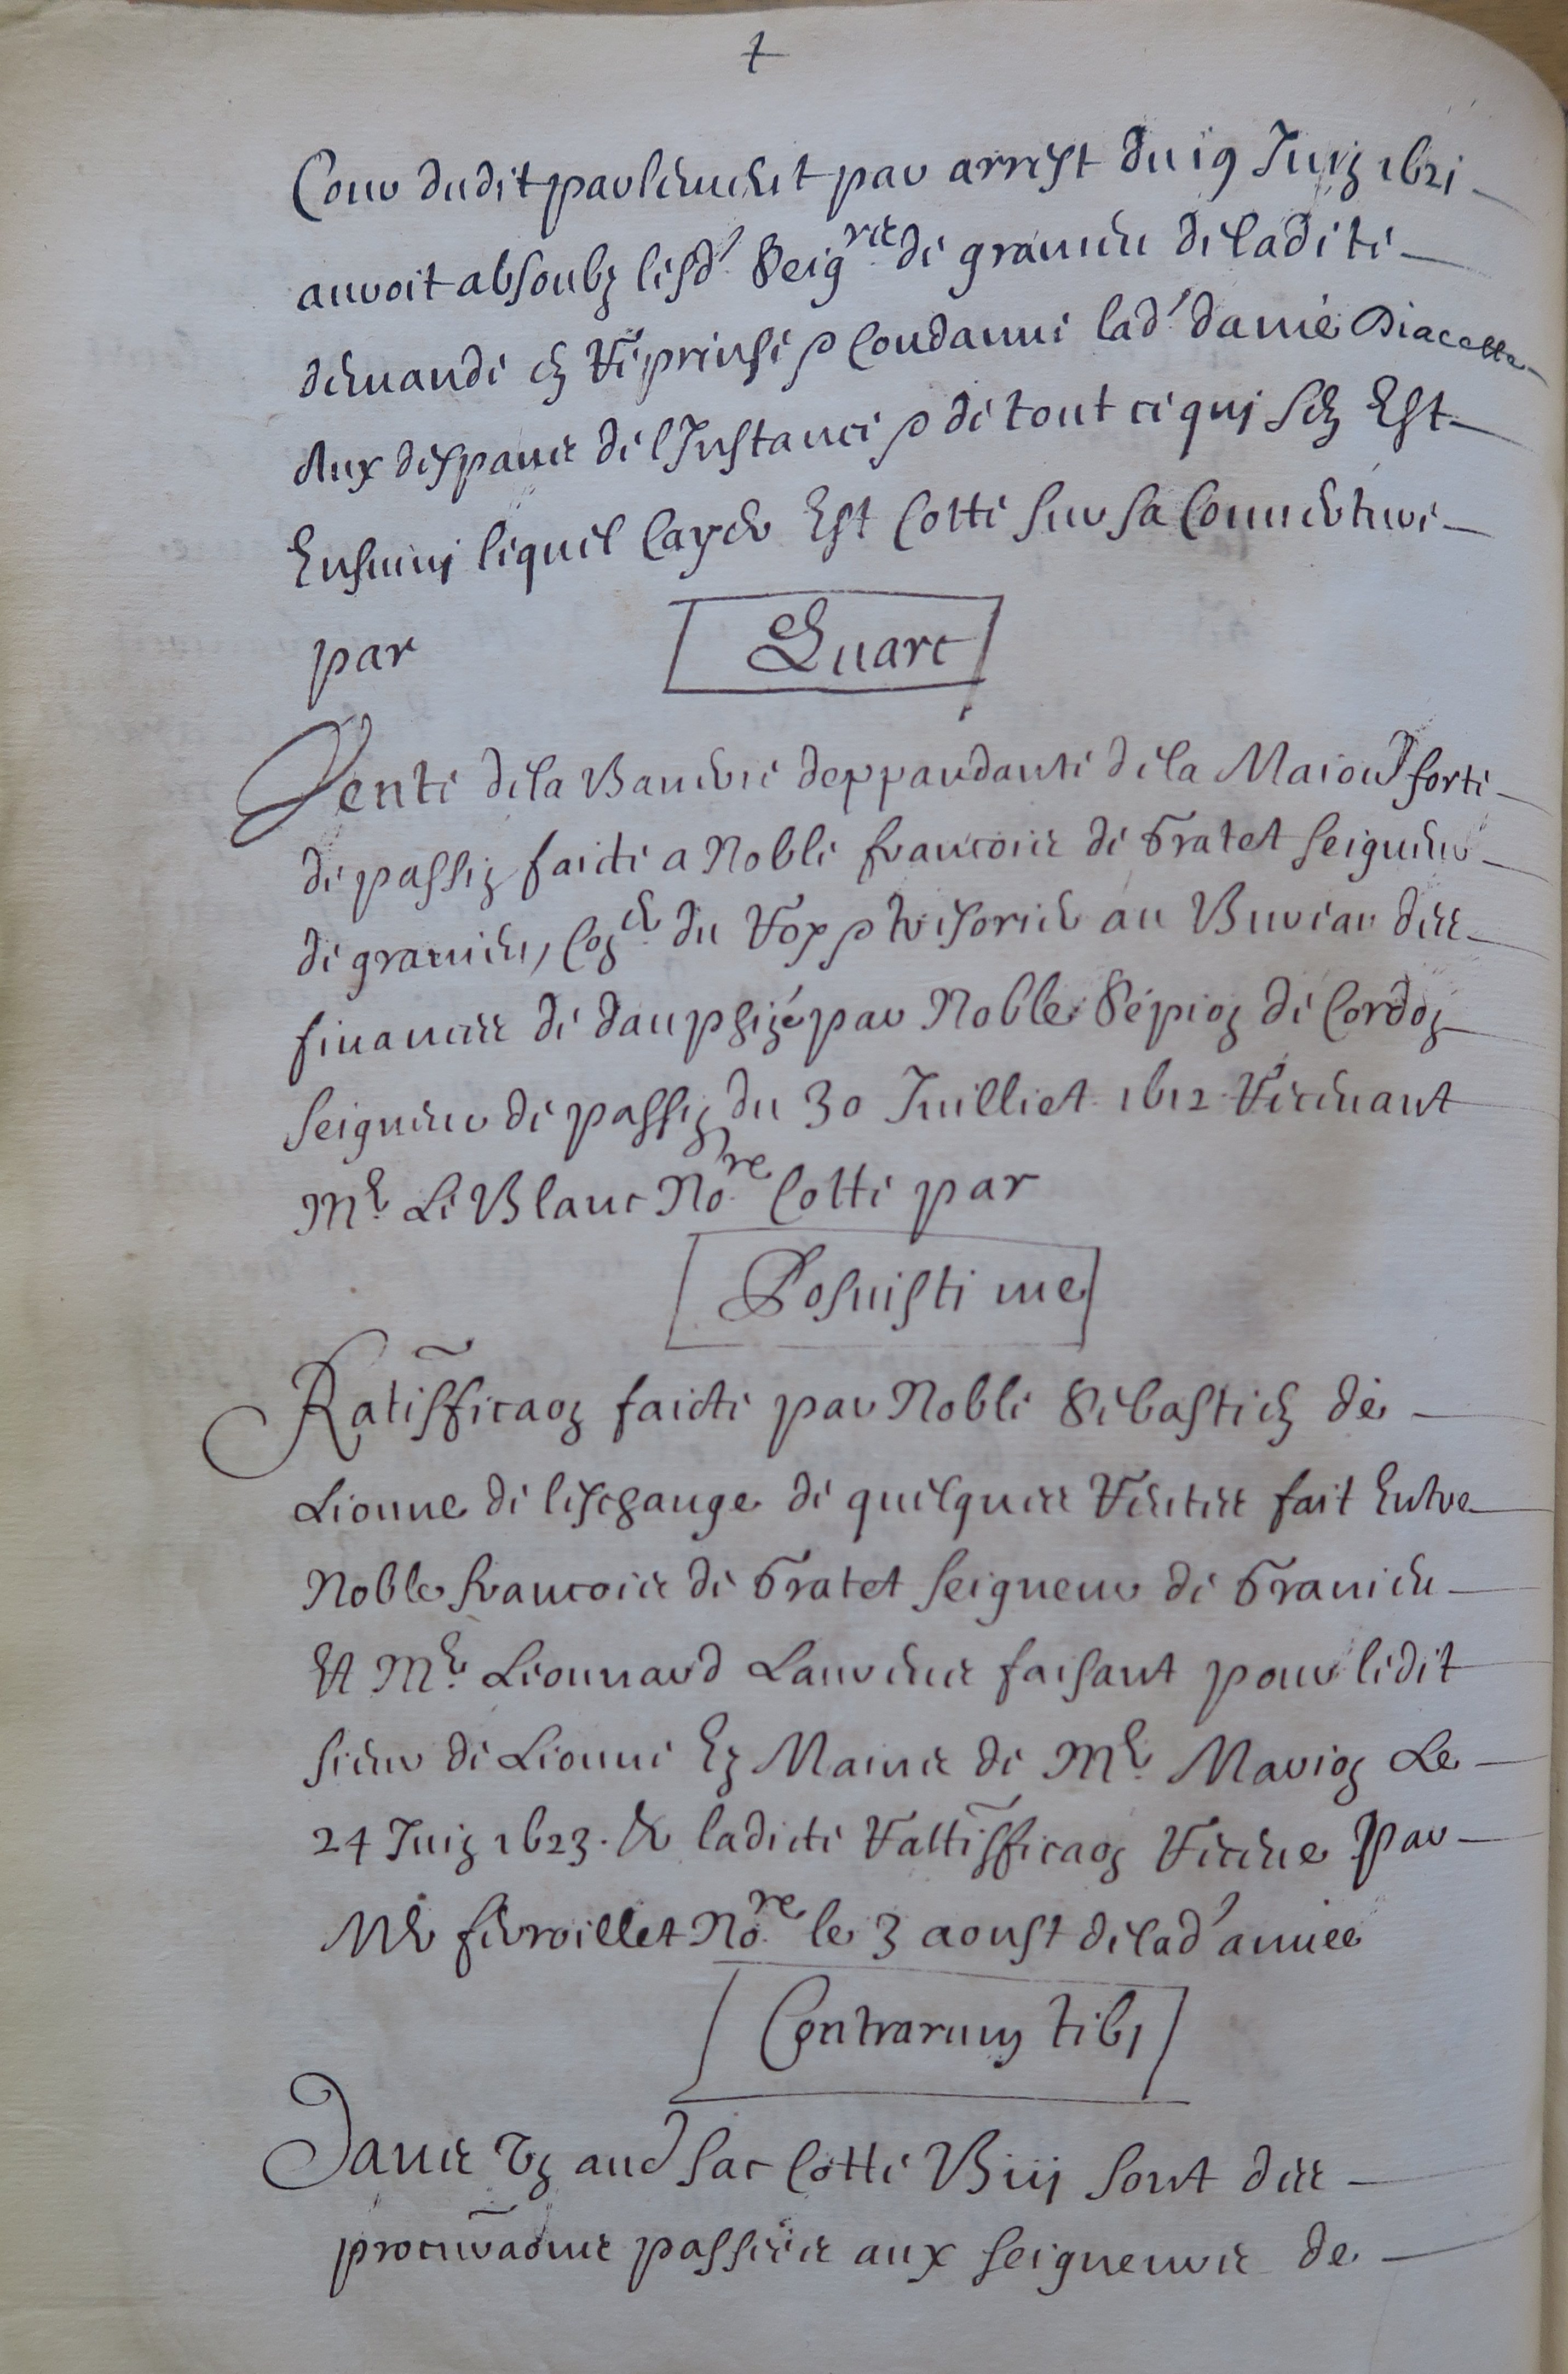 7
Cour dudit parlement par arrest du 19 Juin 1621
auroit absoubz lesd. Seigrs de granieu de ladite
demande en reprinse & condamné lad. dame Diacette
Aux despans de l'Instance & de tout ce quj s'en Est
Ensuivj lequel cayer Est cotté sur sa couuerture
par
Quare
Vente de la Banerie deppandante de la Maiod forte
de passin faicte a Noble francois de Gratet seigneur
de granieu, Coner du Roy & tresorier au Bureau des
finances de dauphiné par Noble Sepion de Cordon
seigneur de passin du 30 Juilliet 1612 Recevant
Me Le Blanc Nore cotté par
Posuisti me
Ratifficaon faicte par Noble Sebastien de
Lionne de l'eschange de quelques Rentes fait Entre
Noble francois de Gratet seigneur de Granieu
Et Me Leonnard Laurens faisant pour ledit
sieur de Lionne En Mains de Me Marion Le
24 Juin 1623. Et ladicte Rattifficaon Receue Par
Me fevroillet Nore le 3 aoust de lad. année
Contrarium tibj
Dans Un aud. sac cotté Biij sont des
procuraons passées aux seigneurs de